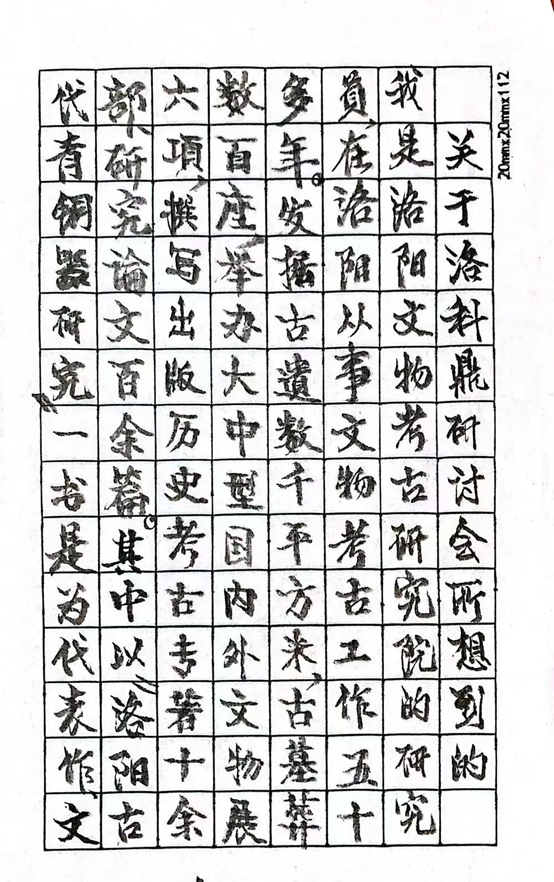 关于洛科鼎研讨会所想到的
我是洛阳文物考古研究院的研究
員,在洛阳从事文物考古工作五十
多年。发掘古遺数千平方米,古墓葬
数百座,举办大中型国内外文物展
六項,撰写出版历史考古专著十余
部,研究論文百余篇。其中以"洛阳古
代青銅器研究"一书是为代表作,文
20mm×20mm×112